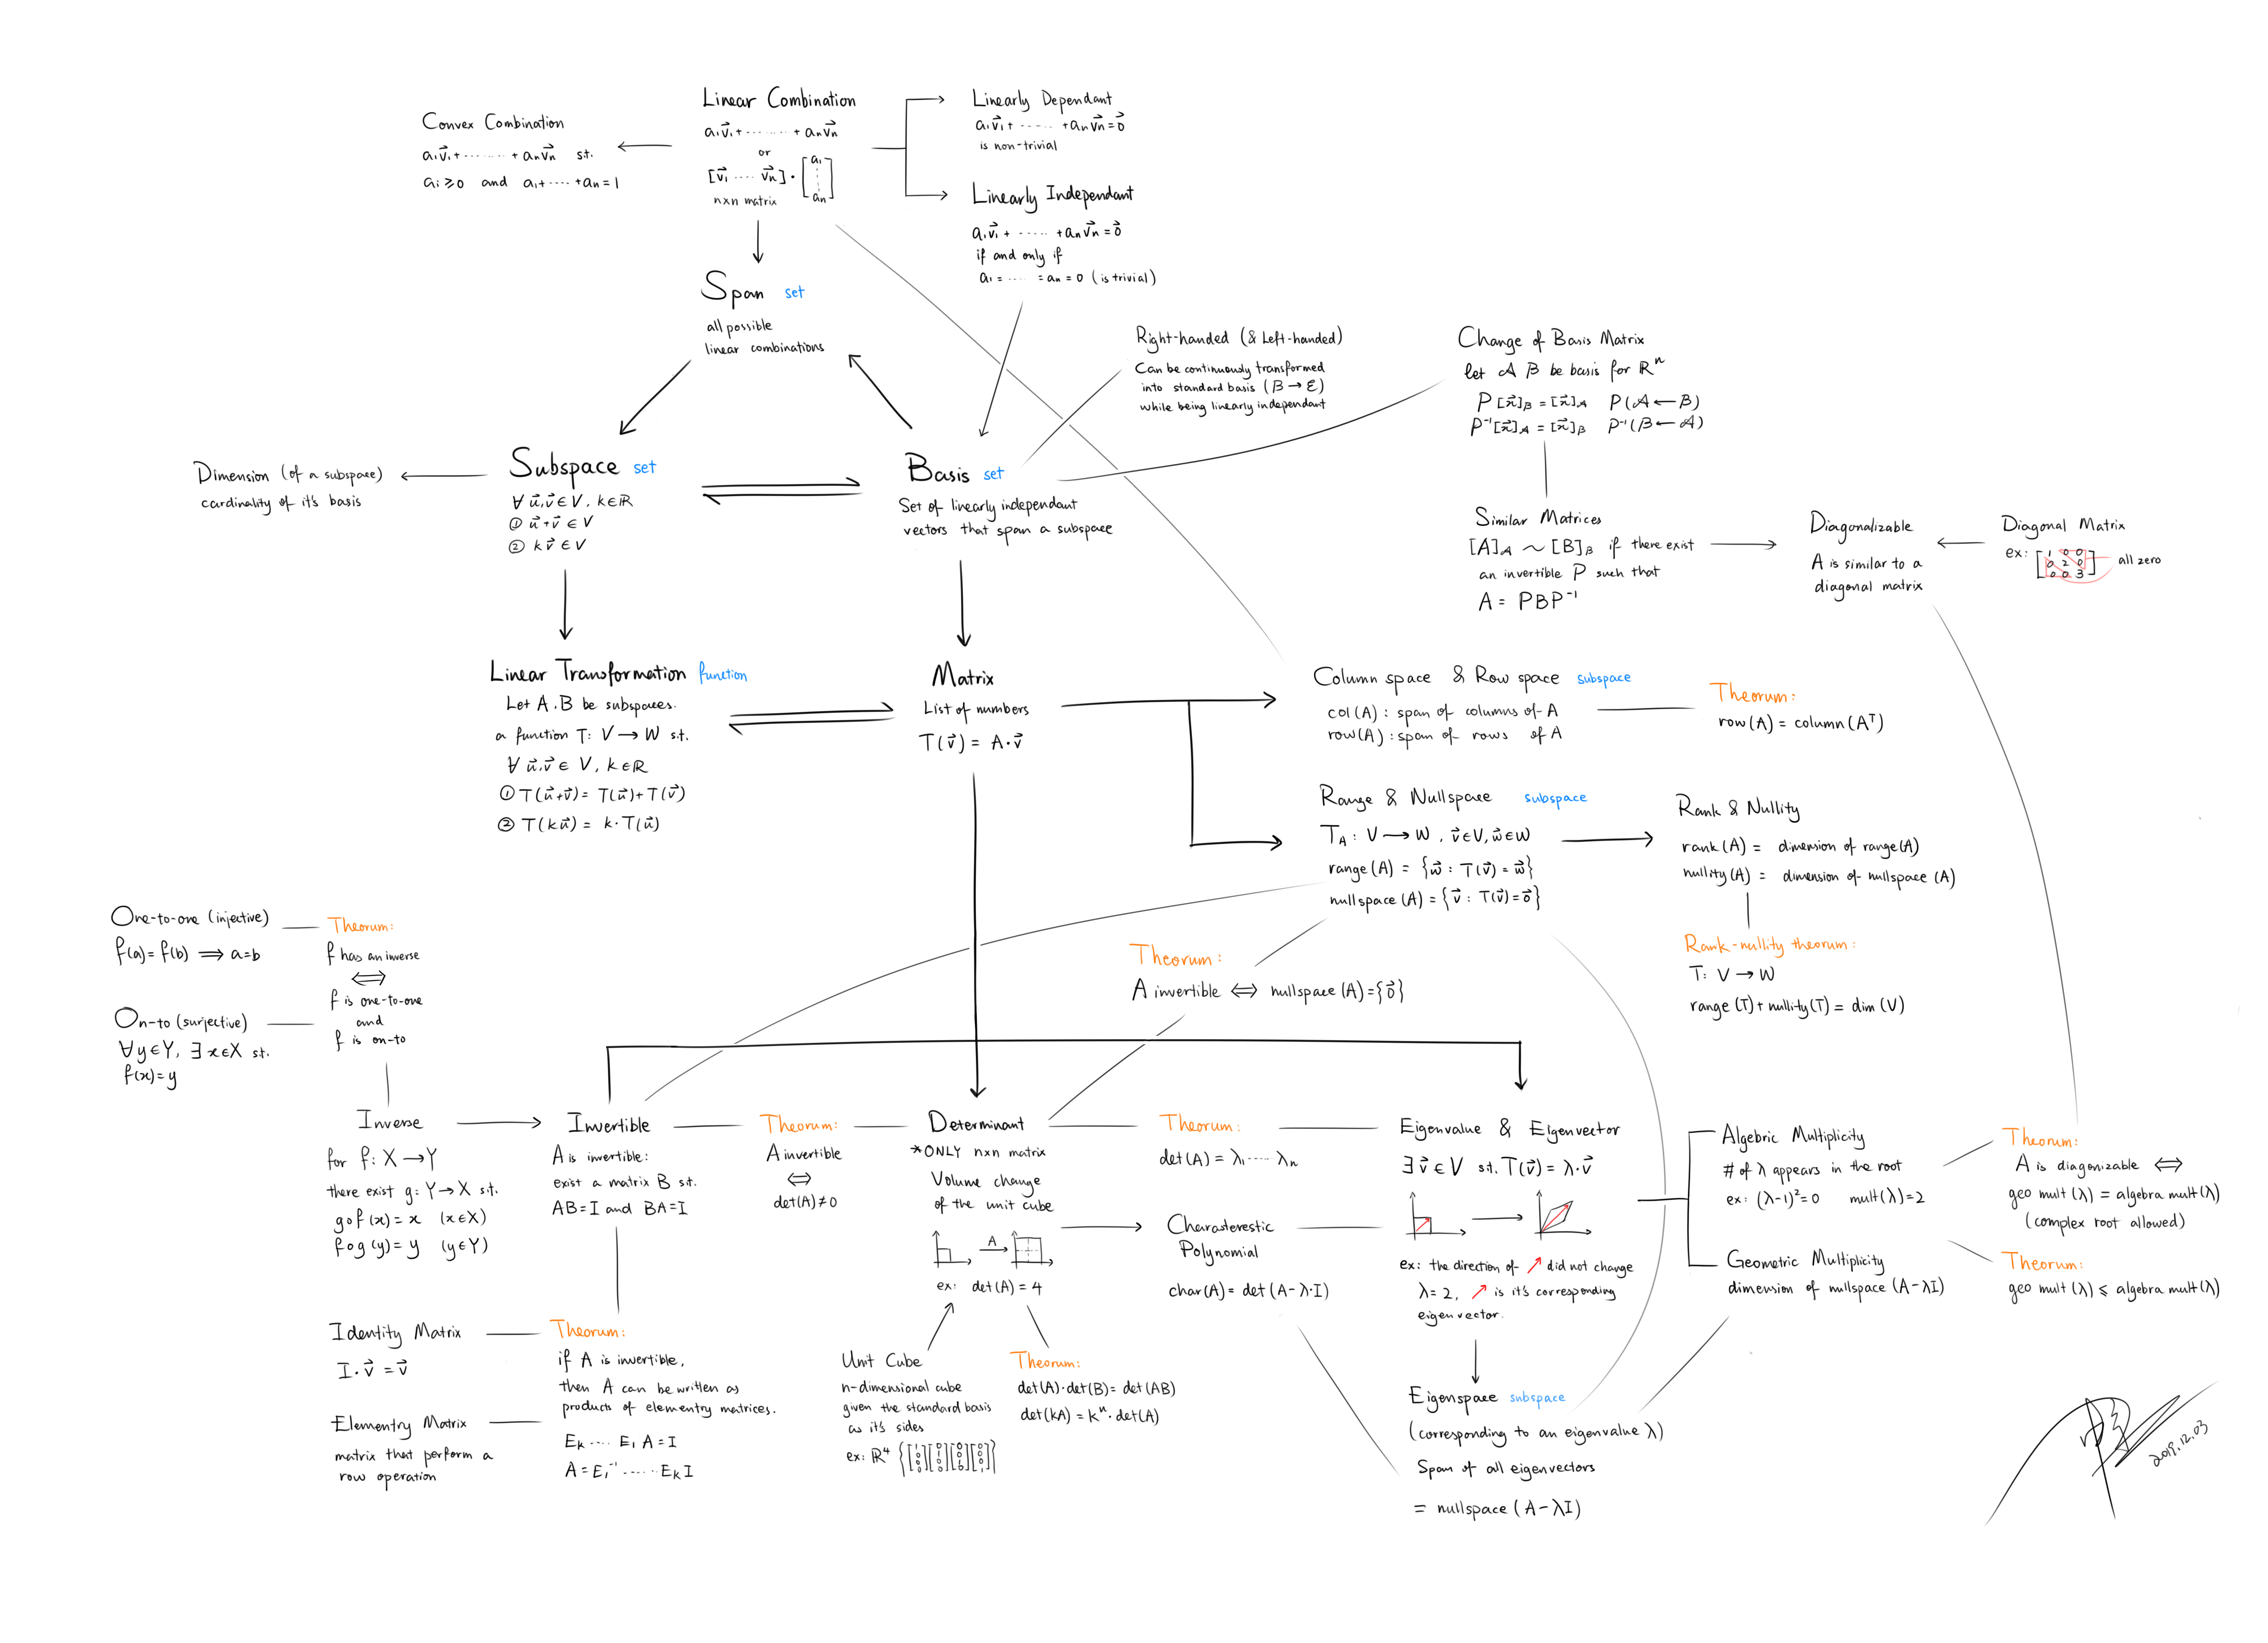 Linear Combination
a₁v⃗₁ + ········ + aₙv⃗ₙ
or
[v⃗₁ ···· v⃗ₙ] · [a₁ ⋮ aₙ]
n×n matrix
Convex Combination
a₁v⃗₁ + ········ + aₙv⃗ₙ s.t.
aᵢ ≥ 0 and a₁ + ···· + aₙ = 1
Linearly Dependant
a₁v⃗₁ + ····· + aₙv⃗ₙ = 0⃗
is non-trivial
Linearly Independant
a₁v⃗₁ + ····· + aₙv⃗ₙ = 0⃗
if and only if
a₁ = ···· = aₙ = 0 (is trivial)
Span set
all possible
linear combinations
Right-handed (& Left-handed)
Can be continuously transformed
into standard basis (B → Ɛ)
while being linearly independant
Change of Basis Matrix
let A B be basis for ℝⁿ
P[x⃗]B = [x⃗]A P(A ← B)
P⁻¹[x⃗]A = [x⃗]B P⁻¹(B ← A)
Dimension (of a subspace)
cardinality of it's basis
Subspace set
∀ u⃗,v⃗ ∈ V, k∈ℝ
① u⃗+v⃗ ∈ V
② kv⃗ ∈ V
Basis set
Set of linearly independant
vectors that span a subspace
Similar Matrices
[A]A ~ [B]B if there exist
an invertible P such that
A = PBP⁻¹
Diagonalizable
A is similar to a
diagonal matrix
Diagonal Matrix
ex: [1 0 0
0 2 0
0 0 3] all zero
Linear Transformation function
Let A.B be subspaces.
a function T: V → W s.t.
∀ u⃗,v⃗ ∈ V, k∈ℝ
① T(u⃗+v⃗) = T(u⃗)+T(v⃗)
② T(ku⃗) = k·T(u⃗)
Matrix
List of numbers
T(v⃗) = A·v⃗
Column space & Row space subspace
col(A): span of columns of A
row(A): span of rows of A
Theorum:
row(A) = column(Aᵀ)
Range & Nullspace subspace
T_A: V → W, v⃗∈V, w⃗∈W
range(A) = {w⃗ : T(v⃗) = w⃗}
nullspace(A) = {v⃗ : T(v⃗)=0⃗}
Rank & Nullity
rank(A) = dimension of range(A)
nullity(A) = dimension of nullspace(A)
Rank-nullity theorum:
T: V → W
range(T)+nullity(T) = dim(V)
One-to-one (injective)
f(a)=f(b) ⟹ a=b
On-to (surjective)
∀y∈Y, ∃x∈X s.t.
f(x)=y
Theorum:
f has an inverse
⟺
f is one-to-one
and
f is on-to
Theorum:
A invertible ⟺ nullspace(A)={0⃗}
Inverse
for f: X → Y
there exist g: Y→X s.t.
g∘f(x) = x (x∈X)
f∘g(y) = y (y∈Y)
Invertible
A is invertible:
exist a matrix B s.t.
AB=I and BA=I
Theorum:
A invertible
⟺
det(A)≠0
Determinant
*ONLY n×n matrix
Volume change
of the unit cube
A
ex: det(A) = 4
Theorum:
det(A) = λ₁ ···· λₙ
Charasterestic
Polynomial
char(A) = det(A-λ·I)
Eigenvalue & Eigenvector
∃ v⃗ ∈ V s.t. T(v⃗) = λ·v⃗
ex: the direction of ↗ did not change
λ=2, ↗ is it's corresponding
eigenvector.
Algebric Multiplicity
# of λ appears in the root
ex: (λ-1)²=0 mult(λ)=2
Geometric Multiplicity
dimension of nullspace (A-λI)
Theorum:
A is diagonizable ⟺
geo mult(λ) = algebra mult(λ)
(complex root allowed)
Theorum:
geo mult(λ) ≤ algebra mult(λ)
Identity Matrix
I·v⃗ = v⃗
Elementry Matrix
matrix that perform a
row operation
Theorum:
if A is invertible,
then A can be written as
products of elementry matrices.
Eₖ ···· E₁ A = I
A = E₁⁻¹ ····· Eₖ I
Unit Cube
n-dimensional cube
given the standard basis
as it's sides
ex: ℝ⁴ {[1 0 0 0] [0 1 0 0] [0 0 1 0] [0 0 0 1]}
Theorum:
det(A)·det(B) = det(AB)
det(kA) = kⁿ·det(A)
Eigenspace subspace
(corresponding to an eigenvalue λ)
Span of all eigenvectors
= nullspace (A-λI)
2019.12.03